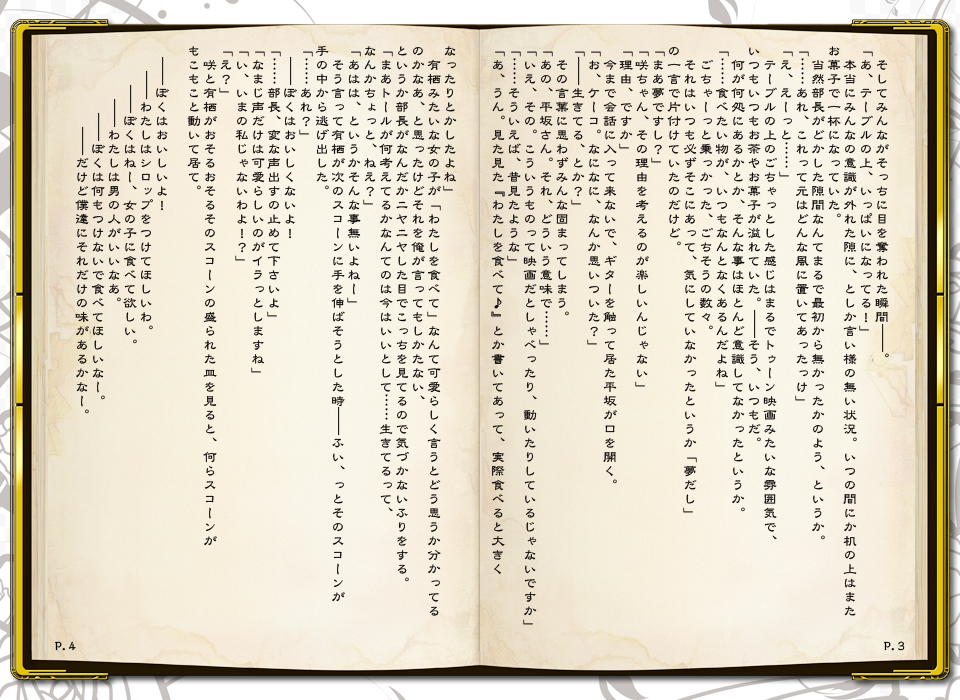 そしてみんながそっちに目を奪われた瞬間――。
「あ、テーブルの上、いっぱいになってる！」
本当にみんなの意識が外れた隙に、としか言い様の無い状況。いつの間にか机の上はまた
お菓子で一杯になっていた。
当然部長がどかした隙間なんてまるで最初から無かったかのよう、というか。
「……あれ、これって元はどんな風に置いてあったっけ」
「え、えーっと……」
テーブルの上のごちゃっとした感じはまるでトゥーン映画みたいな雰囲気で、
いつもいつもお茶やお菓子が溢れていた。――そう、いつもだ。
「何が何処にあるかとか、そんな事はほとんど意識してなかったというか。
「……食べたい物が、いつもなんとなくあるんだよね」
ごちゃーっと乗っかった、ごちそうの数々。
それはいつも必ずそこにあって、気にしていなかったというか「夢だし」
の一言で片付けていたのだけど。
「まあ夢ですし？」
「咲ちゃん、その理由を考えるのが楽しいんじゃない」
「理由、ですか」
今まで会話に入って来ないで、ギターを触って居た平坂が口を開く。
「お、ケーコ。なになに、なんか思いついた？」
「――生きてる、とか？」
その言葉に思わずみんな固まってしまう。
「あの、平坂さん。それ、どういう意味で……」
「いえ、その。こういうものって映画だとしゃべったり、動いたりしているじゃないですか」
「……そういえば、昔見たような」
「あ、うん。見た見た『わたしを食べて♪』とか書いてあって、実際食べると大きく
P.3
なったりとかしたよね」
有栖みたいな女の子が「わたしを食べて」なんて可愛らしく言うとどう思うか分かってる
のかなあ、と思ったけどそれを俺が言ってもしかたない、
というか部長がなんだかニヤニヤした目でこっちを見てるので気づかないふりをする。
「まあトールが何考えてるかなんてのは今はいいとして……生きてるって、
なんかちょっと、ねえ？」
「あはは、というかそんな事無いよねー」
そう言って有栖が次のスコーンに手を伸ばそうとした時――ふい、っとそのスコーンが
手の中から逃げ出した。
「……あれ？」
――ぼくはおいしくないよ！
「……部長、変な声出すの止めて下さいよ」
「なまじ声だけは可愛らしいのがイラっとしますね」
「い、いまの私じゃないわよ！？」
「え？」
咲と有栖がおそるおそるそのスコーンの盛られた皿を見ると、何らスコーンが
もこもこと動いて居て。
――ぼくはおいしいよ！
――わたしはシロップをつけてほしいわ。
――ぼくはねー、女の子に食べて欲しい。
――わたしは男の人がいいなあ。
――ぼくは何もつけないで食べてほしいなー。
――だけど僕達にそれだけの味があるかなー。
P.4